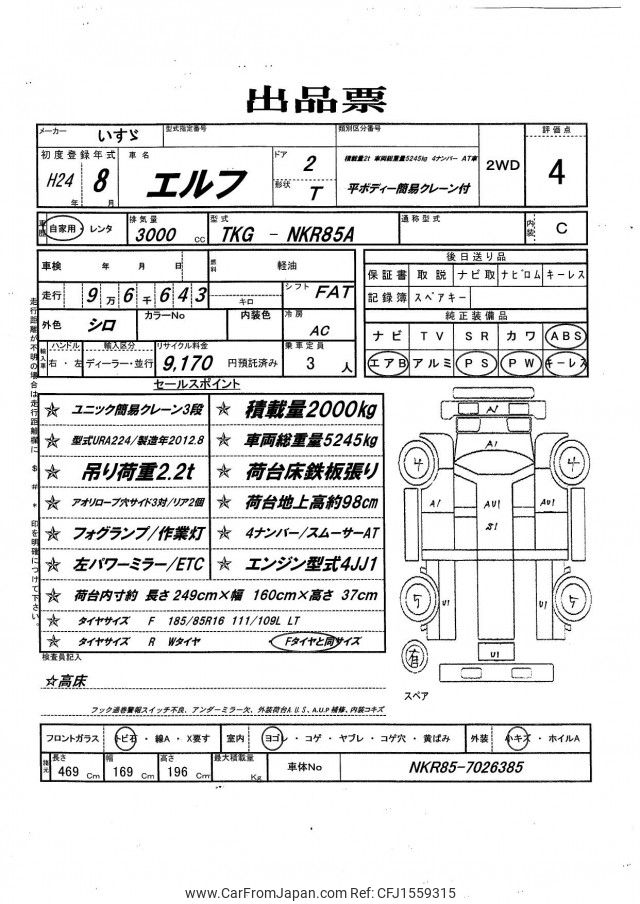 出品票
メーカー いすゞ 型式指定番号 類別区分番号 評価点
初度登録年式 車名 ドア 2 積載量2t 車両総重量5245kg 4ナンバー AT車 2WD 4
H24年 8月 エルフ 形状 T 平ボディー簡易クレーン付
車歴 自家用・レンタ 排気量 3000cc 型式 TKG - NKR85A 通称型式 内装 C
車検 年 月 日 燃料 軽油 後日送り品
保証書 取説 ナビ取 ナビロム キーレス
走行 9万6千643 キロ シフト FAT 記録簿 スペアキー
外色 シロ カラーNo 内装色 冷房 AC 純正装備品
ナビ TV SR カワ ABS
輸入車 ハンドル 右・左 輸入区分 ディーラー・並行 リサイクル料金 9,170 円預託済み 乗車定員 3人 エアB アルミ PS PW キーレス
セールスポイント
☆ ユニック簡易クレーン3段 ☆ 積載量2000kg
☆ 型式URA224/製造年2012.8 ☆ 車両総重量5245kg
☆ 吊り荷重2.2t ☆ 荷台床鉄板張り
☆ アオリロープ穴サイド3対/リア2個 ☆ 荷台地上高約98cm
☆ フォグランプ/作業灯 ☆ 4ナンバー/スムーサーAT
☆ 左パワーミラー/ETC ☆ エンジン型式4JJ1
☆ 荷台内寸約 長さ249cm×幅 160cm×高さ 37cm
☆ タイヤサイズ F 185/85R16 111/109L LT
☆ タイヤサイズ R Wタイヤ Fタイヤと同サイズ
走行距離が不明の場合は走行距離欄に $ # * 印を明確につけて下さい。
A1
4 4
A1 AU1 AU1
S1
5 5
U1 U1
有 U1
スペア
検査員記入
☆高床
フック過巻警報スイッチ不良、アンダーミラー欠、外装荷台A.U.S、A.U.P補修、内装コキズ
フロントガラス トビ石・線A・X要す 室内 ヨゴレ・コゲ・ヤブレ・コゲ穴・黄ばみ 外装 小キズ・ホイルA
諸元 長さ 469Cm 幅 169Cm 高さ 196Cm 最大積載量 Kg 車体No NKR85-7026385
www.CarFromJapan.com Ref: CFJ1559315